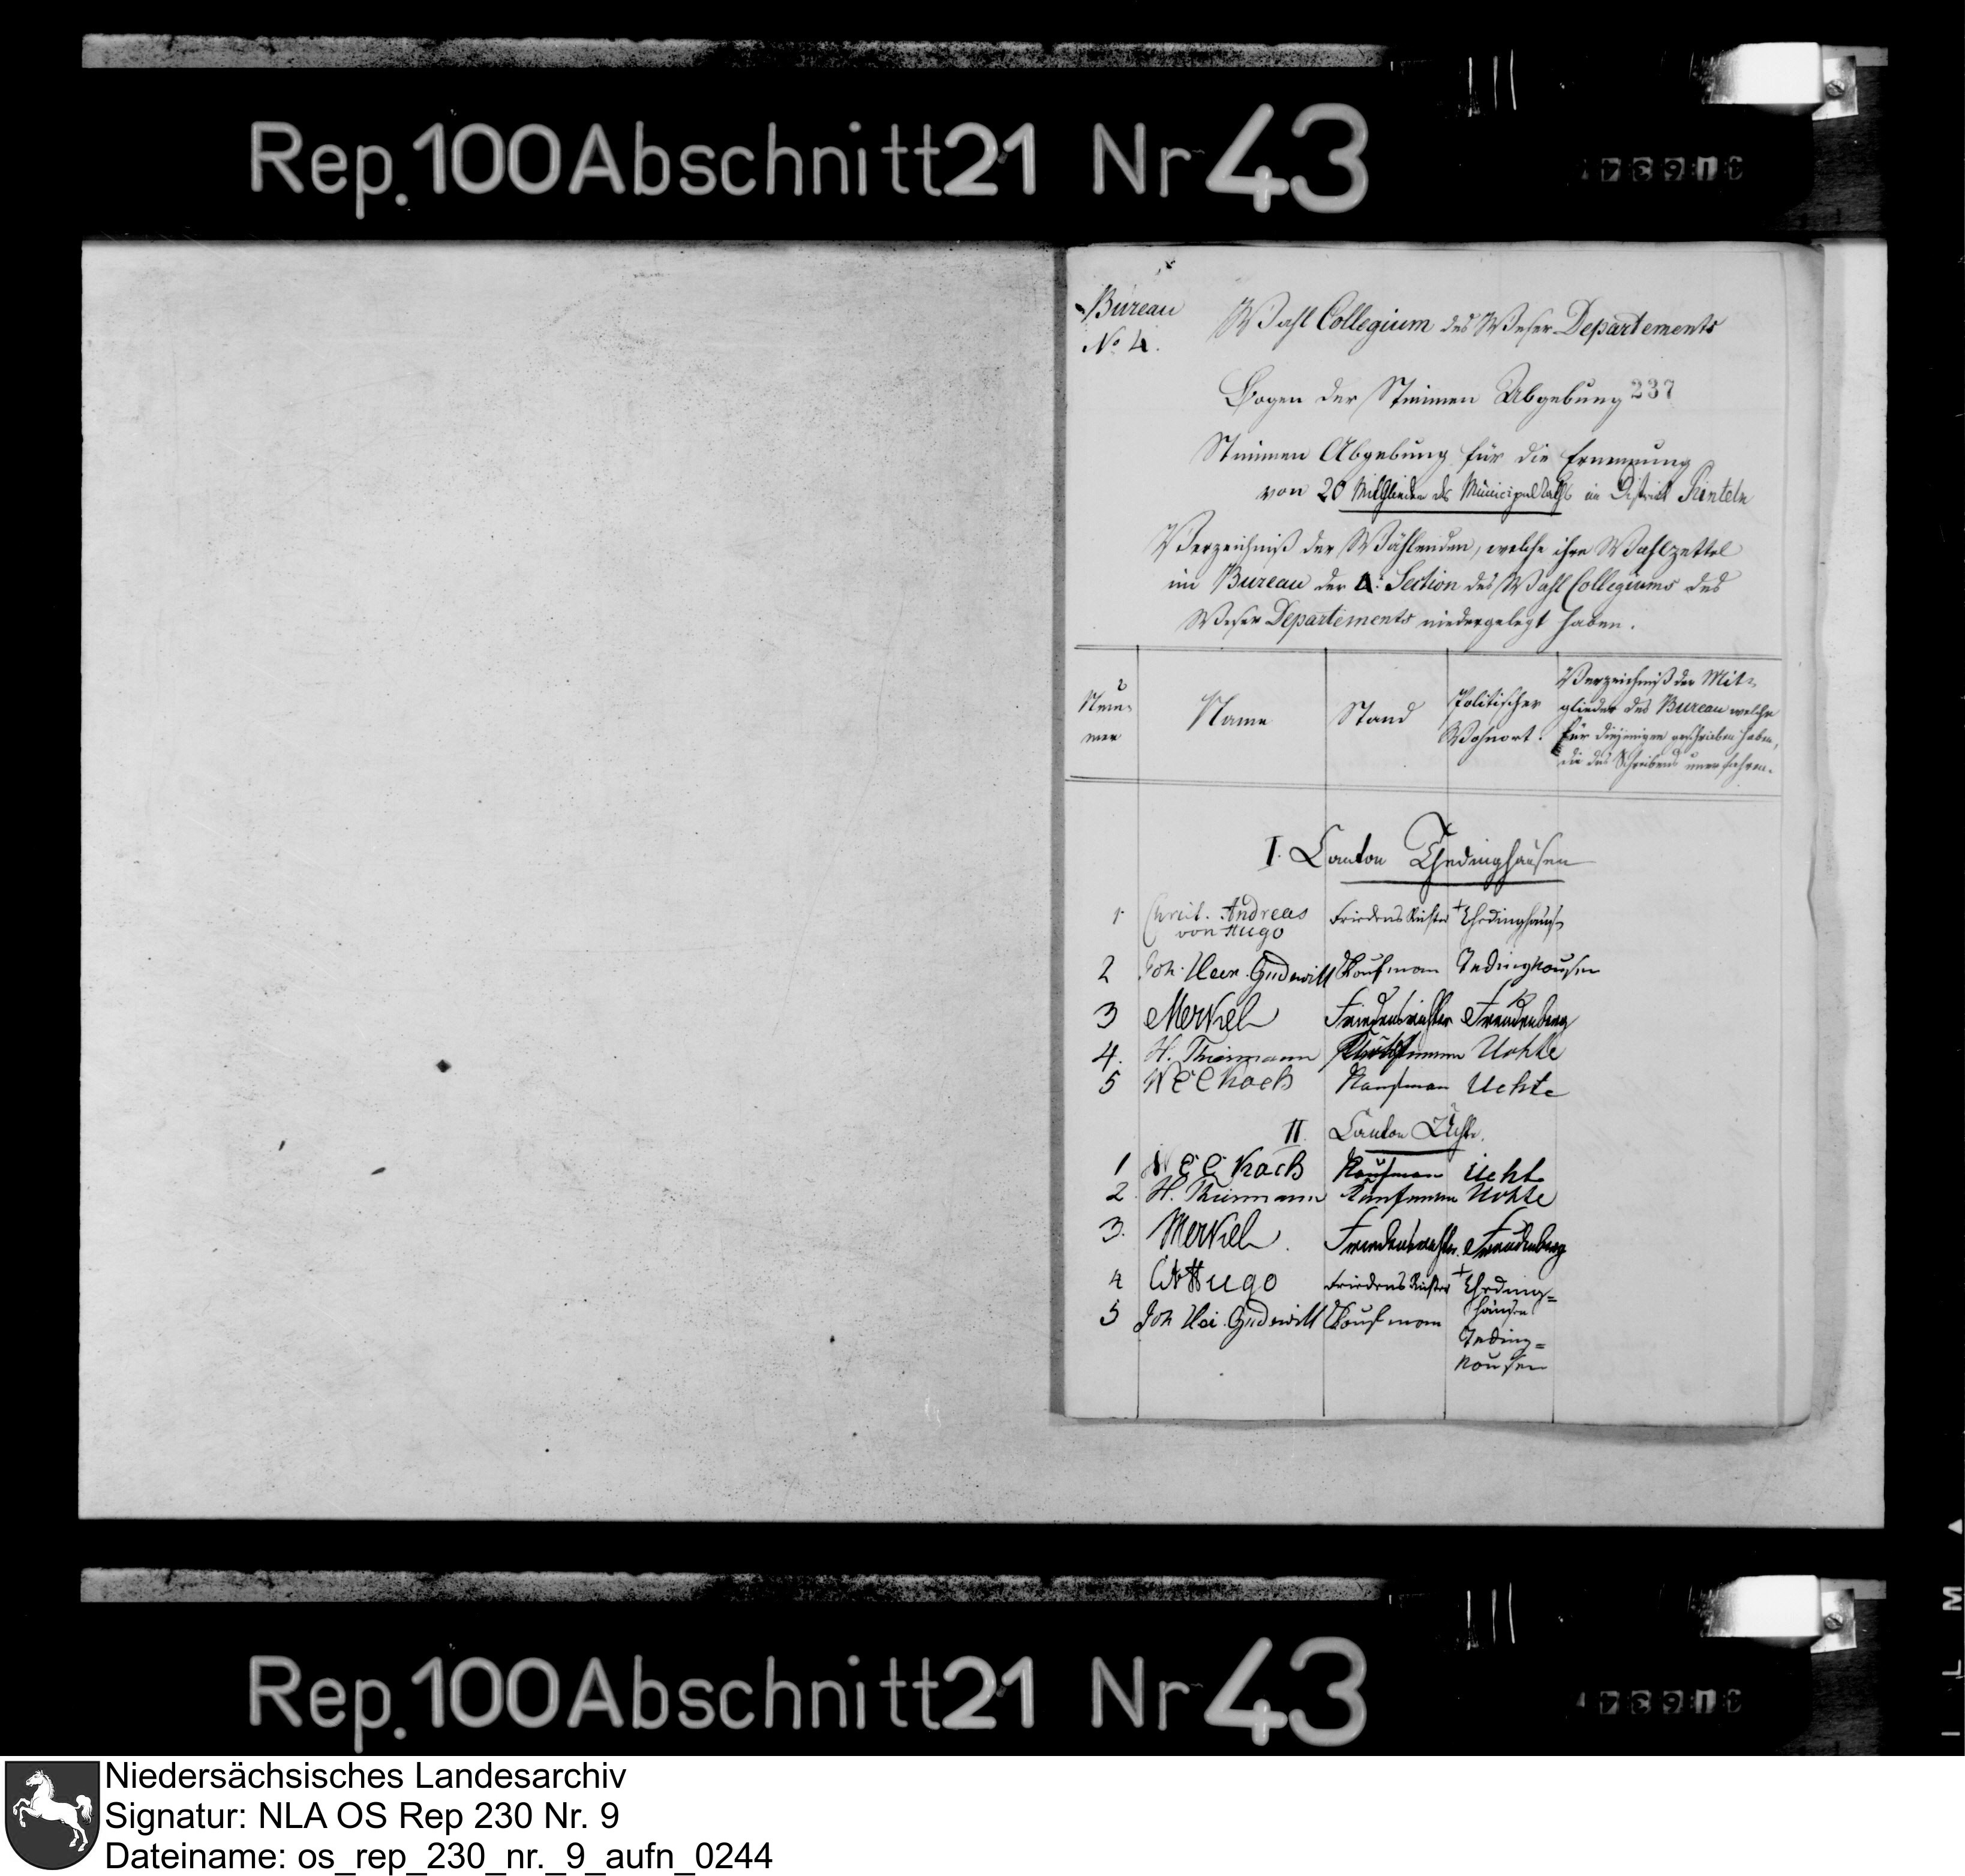 Rep. 100 Abschnitt 21 Nr 43
Bureau
No. 4.
Wahl Collegium des Weser Departements
Bogen der Stimmen Abgebung 237
Stimmen Abgebung für die Ernennung
von 20 Mitglieder des Municipal Raths im District Rinteln
Verzeichniß der Wählenden, welche ihre Wahlzettel
im Bureau der 4. Section des Wahl Collegiums des
Weser Departements niedergelegt haben.
Num-
mer
Name
Stand
Politischer
Wohnort.
Verzeichniß der Mit-
glieder des Bureau welche
für diejenigen geschrieben haben,
die des Schreibens unerfahren.
I. Canton Thedinghausen
1. Christ. Andreas von Hugo Friedens Richter Thedinghausen
2 Joh. Hein. Gudewill Kaufman Tedinghausen
3 Merkel Friedensrichter Freudenberg
4. H. Thürmann Uchte
5 Kaufman Uchte
II. Canton Uchte.
1 Kaufman Ucht
2. H. Thürmann Kaufmann Uchte
3. Merkel. Friedensrichter. Freudenberg
4 Hugo Friedens Richter Theding=
hausen
5 Joh Hei. Gudewill Kaufman Teding=
hausen
Rep. 100 Abschnitt 21 Nr 43
Niedersächsisches Landesarchiv
Signatur: NLA OS Rep 230 Nr. 9
Dateiname: os_rep_230_nr._9_aufn_0244